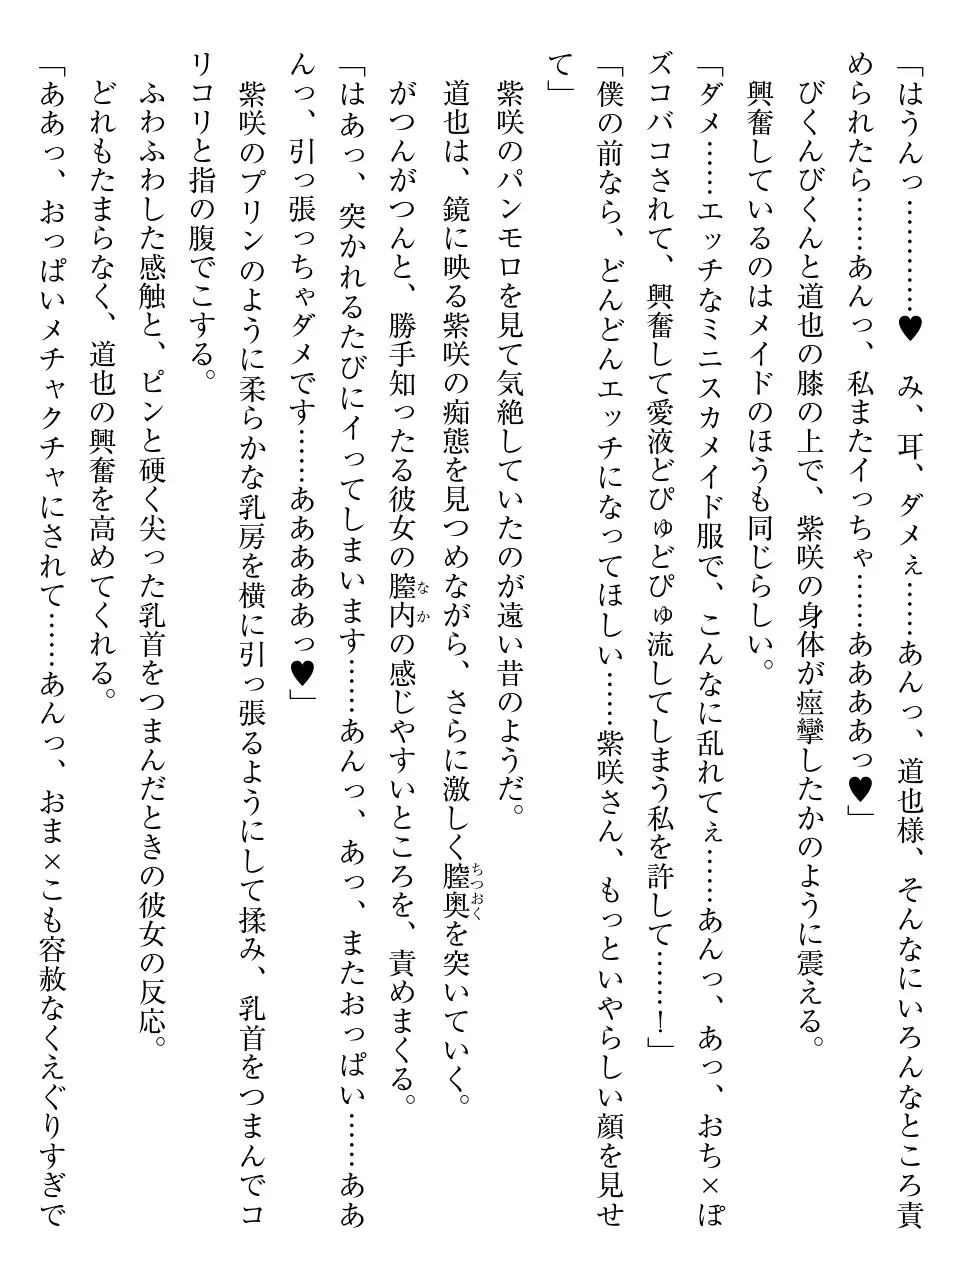 「はうんっ…………♥　み、耳、ダメぇ……あんっ、道也様、そんなにいろんなところ責
められたら……あんっ、私またイっちゃ……ああああっ♥」
　びくんびくんと道也の膝の上で、紫咲の身体が痙攣したかのように震える。
　興奮しているのはメイドのほうも同じらしい。
「ダメ……エッチなミニスカメイド服で、こんなに乱れてぇ……あんっ、あっ、おち×ぽ
ズコバコされて、興奮して愛液どぴゅどぴゅ流してしまう私を許して……！」
「僕の前なら、どんどんエッチになってほしい……紫咲さん、もっといやらしい顔を見せ
て」
　紫咲のパンモロを見て気絶していたのが遠い昔のようだ。
　道也は、鏡に映る紫咲の痴態を見つめながら、さらに激しく膣奥を突いていく。
ちつおく
　がつんがつんと、勝手知ったる彼女の膣内の感じやすいところを、責めまくる。
なか
「はあっ、突かれるたびにイってしまいます……あんっ、あっ、またおっぱい……ああ
んっ、引っ張っちゃダメです……あああああっ♥」
　紫咲のプリンのように柔らかな乳房を横に引っ張るようにして揉み、乳首をつまんでコ
リコリと指の腹でこする。
　ふわふわした感触と、ピンと硬く尖った乳首をつまんだときの彼女の反応。
　どれもたまらなく、道也の興奮を高めてくれる。
「ああっ、おっぱいメチャクチャにされて……あんっ、おま×こも容赦なくえぐりすぎで